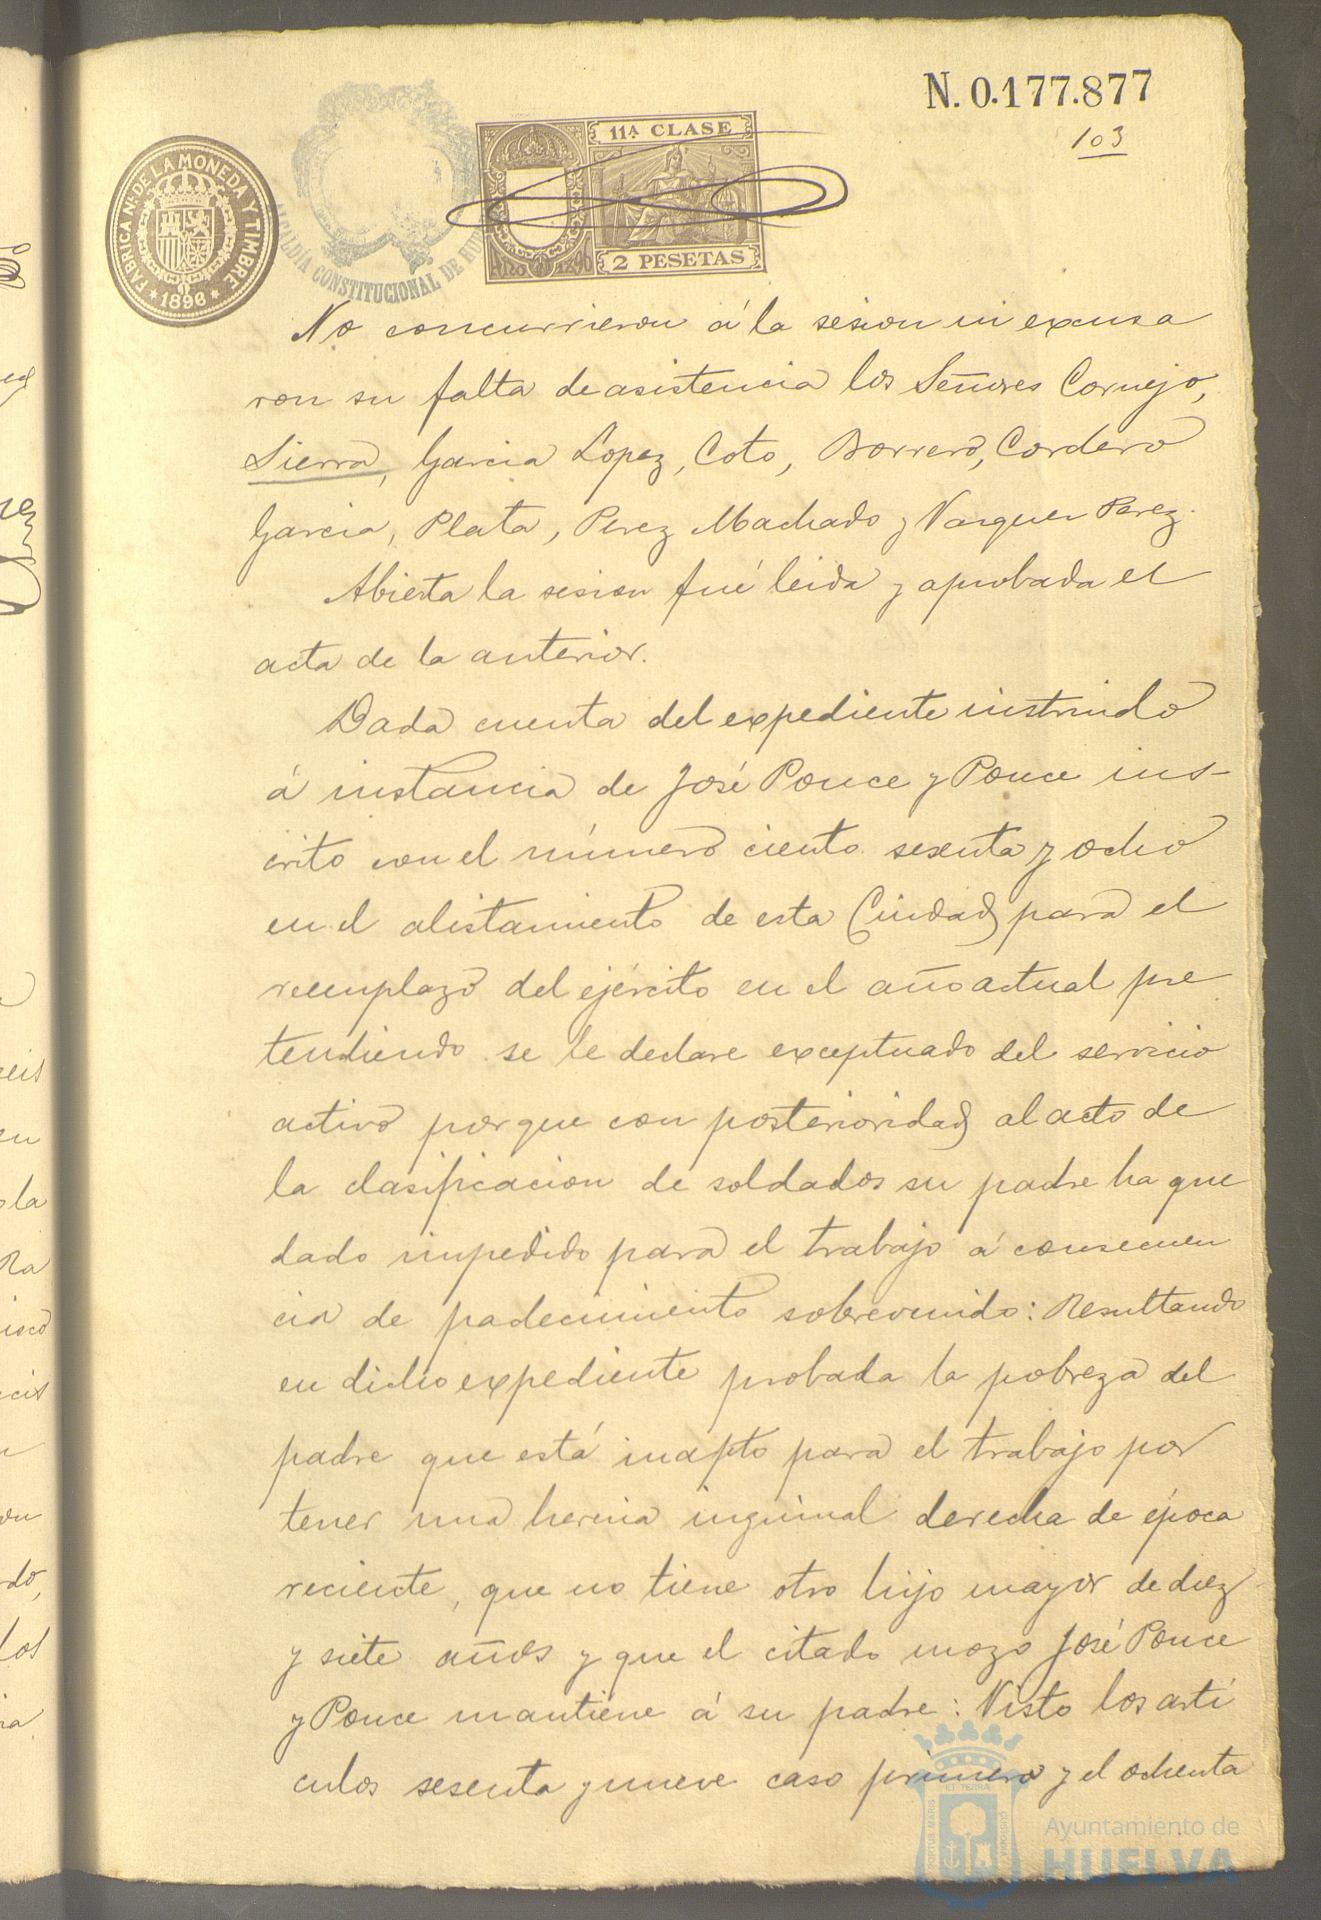 N. 0.177.877
103
FABRICA Nal DE LA MONEDA Y TIMBRE
1896
ALCALDÍA CONSTITUCIONAL DE HUE
11ª CLASE
Año 1896
2 PESETAS
No concurrieron á la sesion ni excusa
ron su falta de asistencia los Señores Cornejo,
Sierra, Garcia Lopez, Coto, Borrero, Cordero
Garcia, Plata, Perez Machado y Vazquez Perez.
Abierta la sesion fué leida y aprobada el
acta de la anterior.
Dada cuenta del expediente instruido
á instancia de José Ponce y Ponce ins-
crito con el número ciento sesenta y ocho
en el alistamiento de esta Ciudad para el
reemplazo del ejército en el año actual pre
tendiendo se le declare exceptuado del servicio
activo porque con posterioridad al acto de
la clasificacion de soldados su padre ha que
dado impedido para el trabajo á consecuen
cia de padecimiento sobrevenido: Resultando
en dicho expediente probada la pobreza del
padre que está inapto para el trabajo por
tener una hernia inguinal derecha de época
reciente, que no tiene otro hijo mayor de diez
y siete años y que el citado mozo José Ponce
y Ponce mantiene á su padre: Visto los artí
culos sesenta y nueve caso primero y el ochenta
PORTUS MARIS ET TERRAE CUSTODIA
Ayuntamiento de
HUELVA